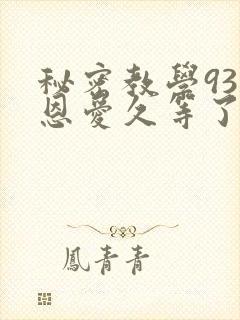 秘密教學93
恩愛久等了
鳳青青